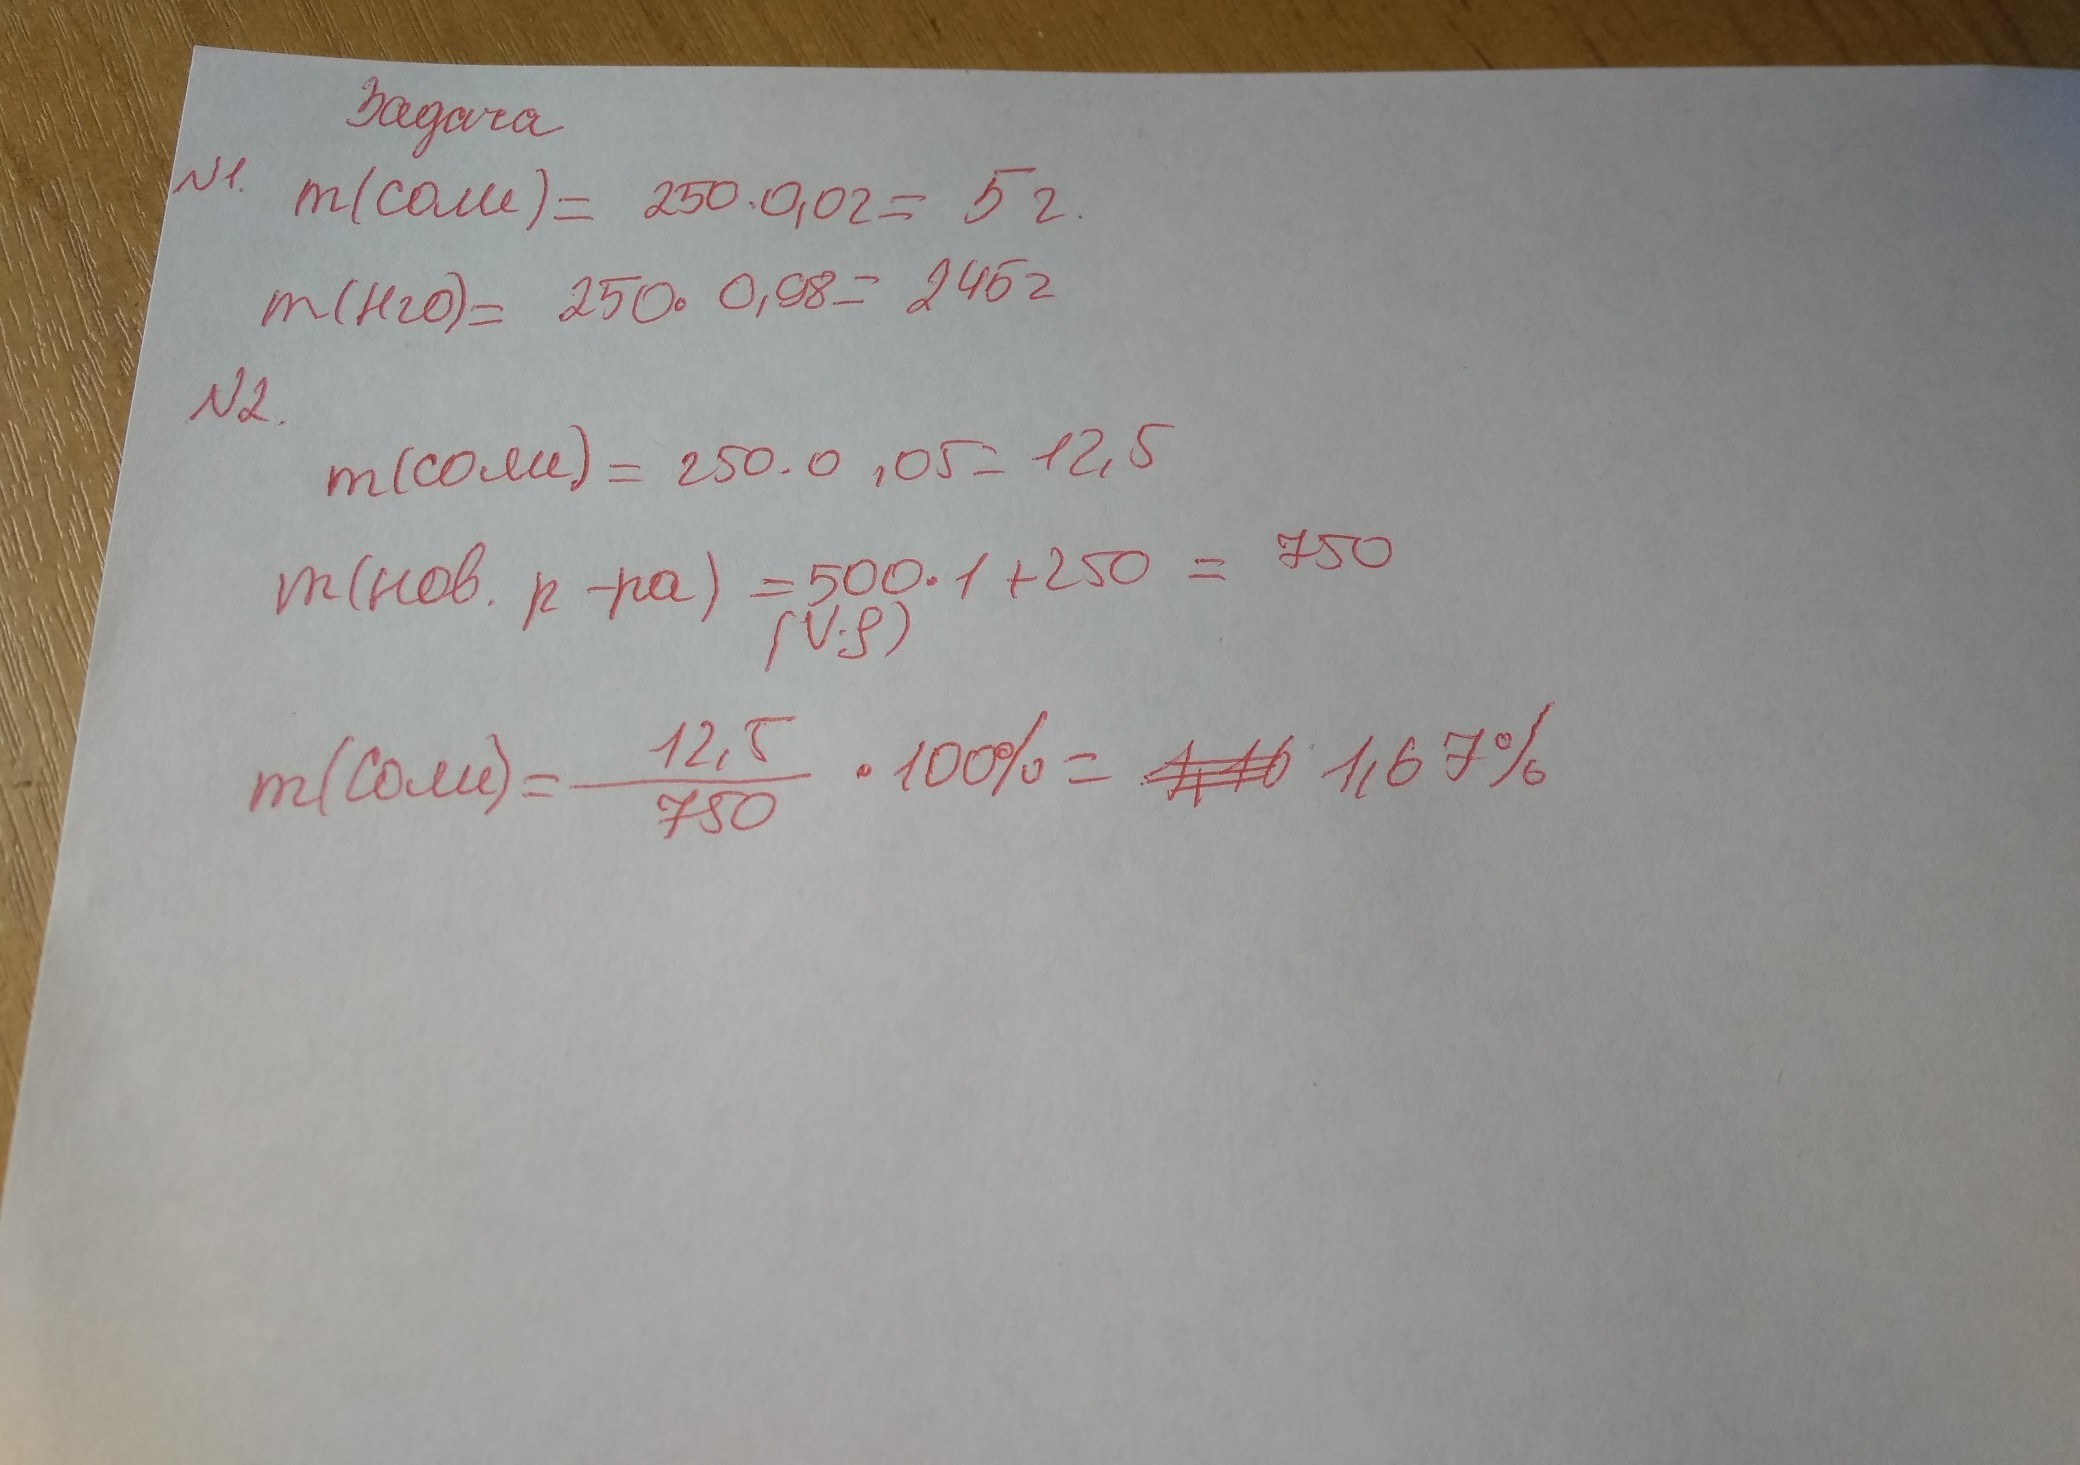 Задача
№1. m(соли) = 250·0,02 = 5 г.
m(H2O) = 250·0,98 = 245 г
№2.
m(соли) = 250·0,05 = 12,5
m(нов. р-ра) = 500·1+250 = 750
(V·ρ)
m(соли) = 12,5/750 · 100% = 1,67%